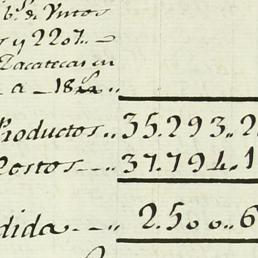 b.ˢ de Vntos
s y 2201. —
Zacatecas en
a — 18
Productos.. 35.293..2
Costos --- 37.794.1
dida --- 2.500..6